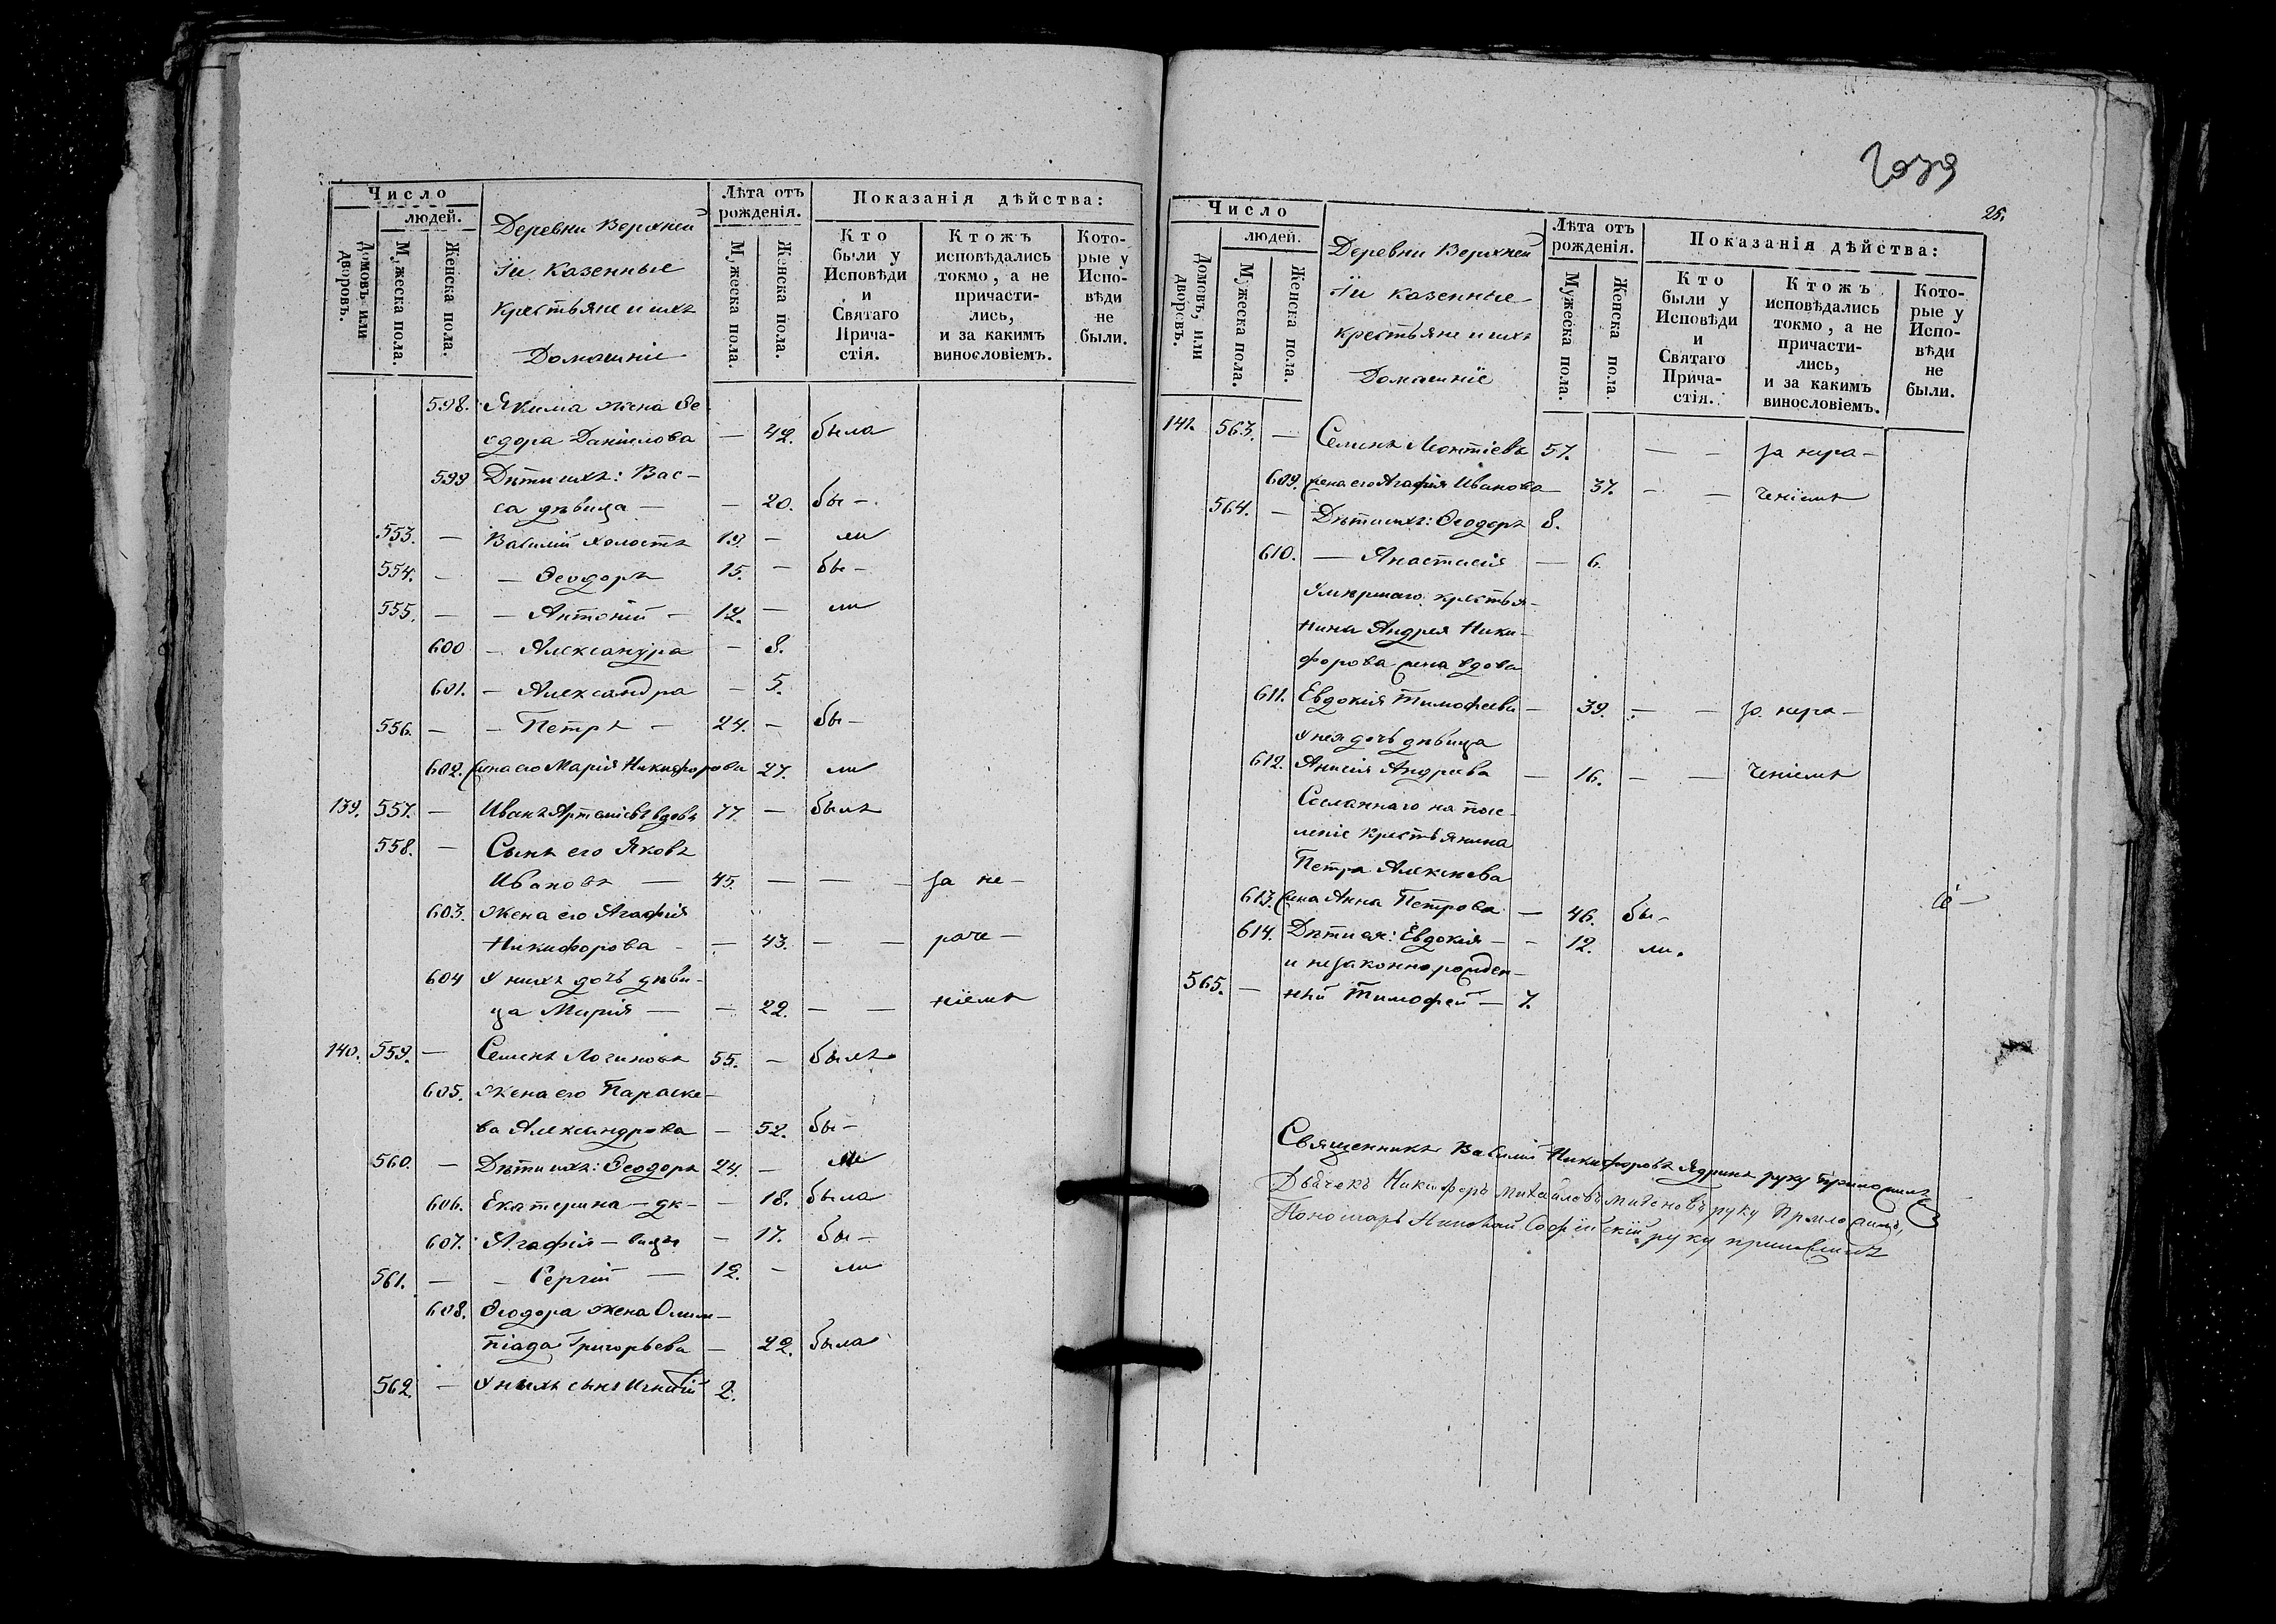 Число
людей.
Домовъ или дворовъ.
Мужеска пола.
Женска пола.
Деревни Верхней
Їи Казенные
крестьяне и ихъ
Домашніе
Лѣта отъ рожденія.
Мужеска пола.
Женска пола.
Показанія дѣйства:
Кто были у Исповѣди и Святаго Прича-стія.
Ктожъ исповѣдались токмо, а не причасти-лись, и за какимъ винословіемъ.
Кото-рые у Испо-вѣди не были.
598. Якима жена Ѳе
одора Даніилова — 42. была
599 Дѣти ихъ: Вас-
са дѣвица — — 20. бы-
553. — Василій холостъ 19. — ли
554. — — Ѳеодоръ 15. — бы-
555. — — Антоній — 12. — ли
600 — Александра — 8.
601. — Александра — 5.
556. — — Петръ — 24. — бы-
602. Жена его Марія Никифорова 27. ли
139. 557. — Иванъ Артеміевъ вдовъ 77. — былъ
558. — Сынъ его Яковъ
Ивановъ — 45. — — — за не-
603. Жена его Агафія
Никифорова — — 43. — — раче-
604 У нихъ дочь дѣви-
ца Марія — — 22. — — ніемъ
140. 559. — Семенъ Логиновъ 55. — былъ
605. Жена его Параске-
ва Александрова — 52. бы-
560. — Дѣти ихъ: Ѳеодоръ 24. — ли
606. Екатерина — дѣ- — 18. была
607. Агафія — вицы — 17. бы-
561. — — Сергій — 12. — ли
608. Ѳеодора жена Олим-
піада Григорьева — 22. была
562. — У нихъ сынъ Игнатій 2.
25.
Число
людей.
Домовъ, или дворовъ.
Мужеска пола.
Женска пола.
Деревни Верхней
Їи казенные
крестьяне и ихъ
Домашніе
Лѣта отъ рожденія.
Мужеска пола.
Женска пола
Показанія дѣйства:
Кто были у Исповѣди и Святаго Прича-стія.
Ктожъ исповѣдались токмо, а не причасти-лись, и за какимъ винословіемъ.
Кото-рые у Испо-вѣди не были.
141. 563. — Семенъ Леонтіевъ 57. — — за нера-
609. Жена его Агафія Иванова — 37. — — ченіемъ
564. — Дѣти ихъ: Ѳеодоръ 8.
610. — Анастасія — 6.
Умершаго крестья-
нина Андрея Ники-
форова жена вдова
611. Евдокія Тимофеева — 39. — — за нера-
У нея дочь дѣвица
612. Анисія Андреева — 16. — — ченіемъ
Сосланнаго на посе-
леніе крестьянина
Петра Алексѣева
613. Жена Анна Петрова — 46. бы-
614. Дѣти ея: Евдокія — — 12. ли.
и незаконнорожден-
565. — ный Тимофей — 7.
Священникъ Василій Никифоровъ Ядринъ руку приложилъ
Дьячекъ Никифоръ Михайловъ руку приложилъ,
Пономарь Николай Софійскій руку приложилъ